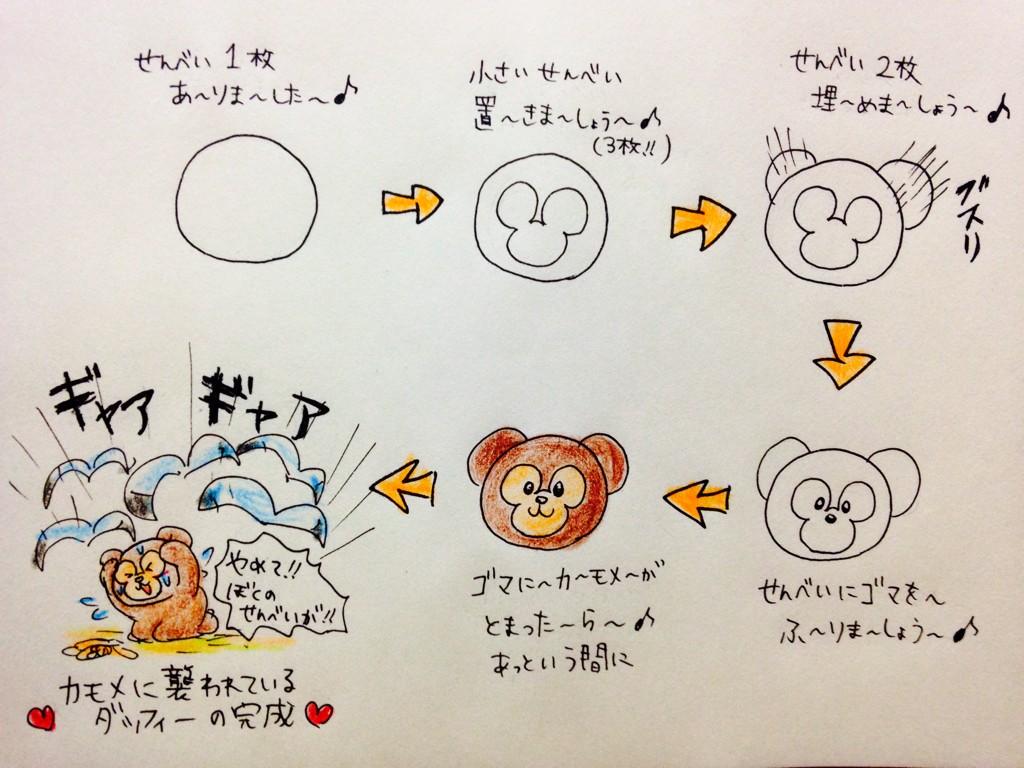 せんべい1枚
あ〜りま〜した〜♪
小さいせんべい
置〜きま〜しょう〜♪
(3枚!!)
せんべい2枚
埋〜めま〜しょう〜♪
ブスリ
せんべいにゴマを〜
ふ〜りま〜しょう〜♪
ゴマに〜カ〜モメ〜が
とまった〜ら〜♪
あっという間に
ギャア ギャア
やめて!!
ぼくの
せんべいが!!
カモメに襲われている
ダッフィーの完成